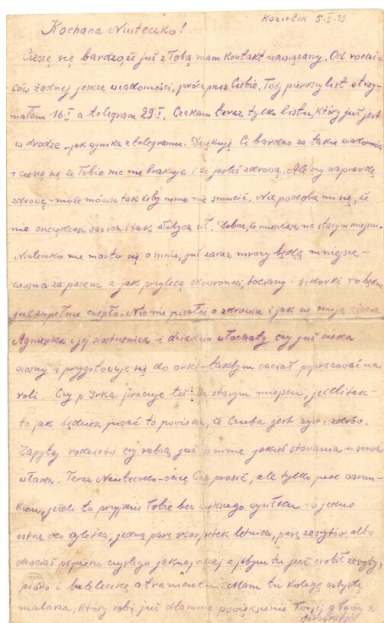 Kozielsk 5-II-
Kochana Niuteczko!
Cieszę się bardzo, że już z Tobą mam kontakt nawiązany. Od rodzi-
ców żadnej jeszcze wiadomości, prócz przez Ciebie. Twój pierwszy list otrzy-
małem 16-I a telegram 29-I. Czekam teraz tylko listu, który już jest
w drodze, jak wynika z telegramu. Dziękuję Ci bardzo za takie wiadomości
i cieszę się że Tobie nic nie brakuje i że jesteś zdrową. Ale czy naprawdę
zdrową - może mówisz tak żeby mnie nie smucić. Nie podoba mi się, że
nie oszczędzasz i tak Dobrze, że mieszkasz na starym miejscu.
Niuteńko nie martw się o mnie, już zaraz mrozy będą mniejsze -
wiosna za pasem, a jak przylecą skowronki, bociany i to będzie
już zupełnie ciepło. Nic nie piszesz o zdrowiu i jak się moja ciocia
Agnieszka i jej siostrzenica i włochaty czy już czeka
wiosny i przygotowuje się do bym chciał popracować na
roli. Czy p. Irka pracuje też na starym miejscu, jeśli tak -
to jak będziesz pisać to powiedz, że Czuba jest żyw i zdrów.
Zapytaj rodziców czy robią już o mnie jakieś starania u
władz. Teraz Niuteczko - chcę Cię prosić, ale tylko pod warun-
kiem, jeśli to przyjdzie Tobie bez żadnego wysiłku - o jedno
jedną parę skarpetek letnich, parę zeszytów albo
chociaż papieru czystego jaknajwięcej a jabym tu już zrobił zeszyty,
pióro i buteleczkę atramentu. Mam tu kolegę artystę
malarza, który robi już dla mnie powiększenie Twojej głowy z
fotografji